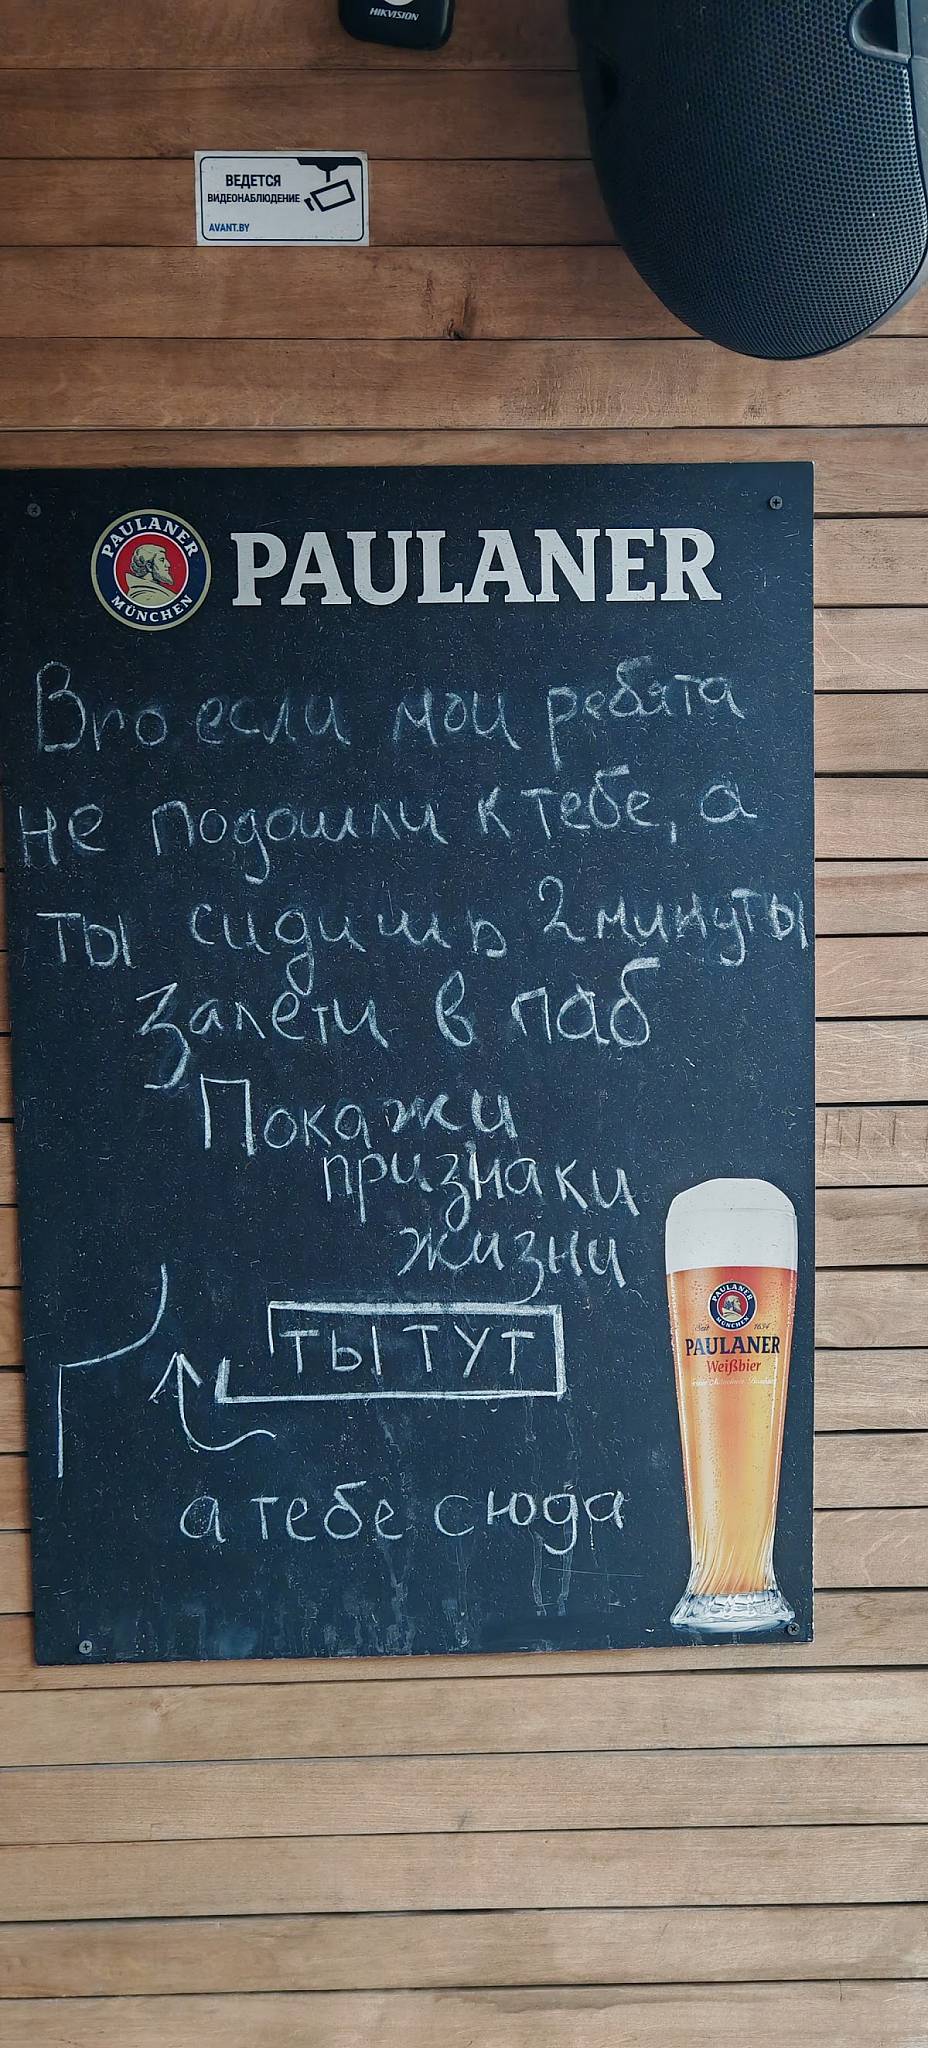 HIKVISION
ВЕДЕТСЯ
ВИДЕОНАБЛЮДЕНИЕ
AVANT.BY
PAULANER
MÜNCHEN
PAULANER
Бго если мои ребята
не подошли к тебе, а
ты сидишь 2 минуты
залети в паб
Покажи
признаки
жизни
ТЫ ТУТ
а тебе сюда
PAULANER
MÜNCHEN
Seit 1634
PAULANER
Weißbier